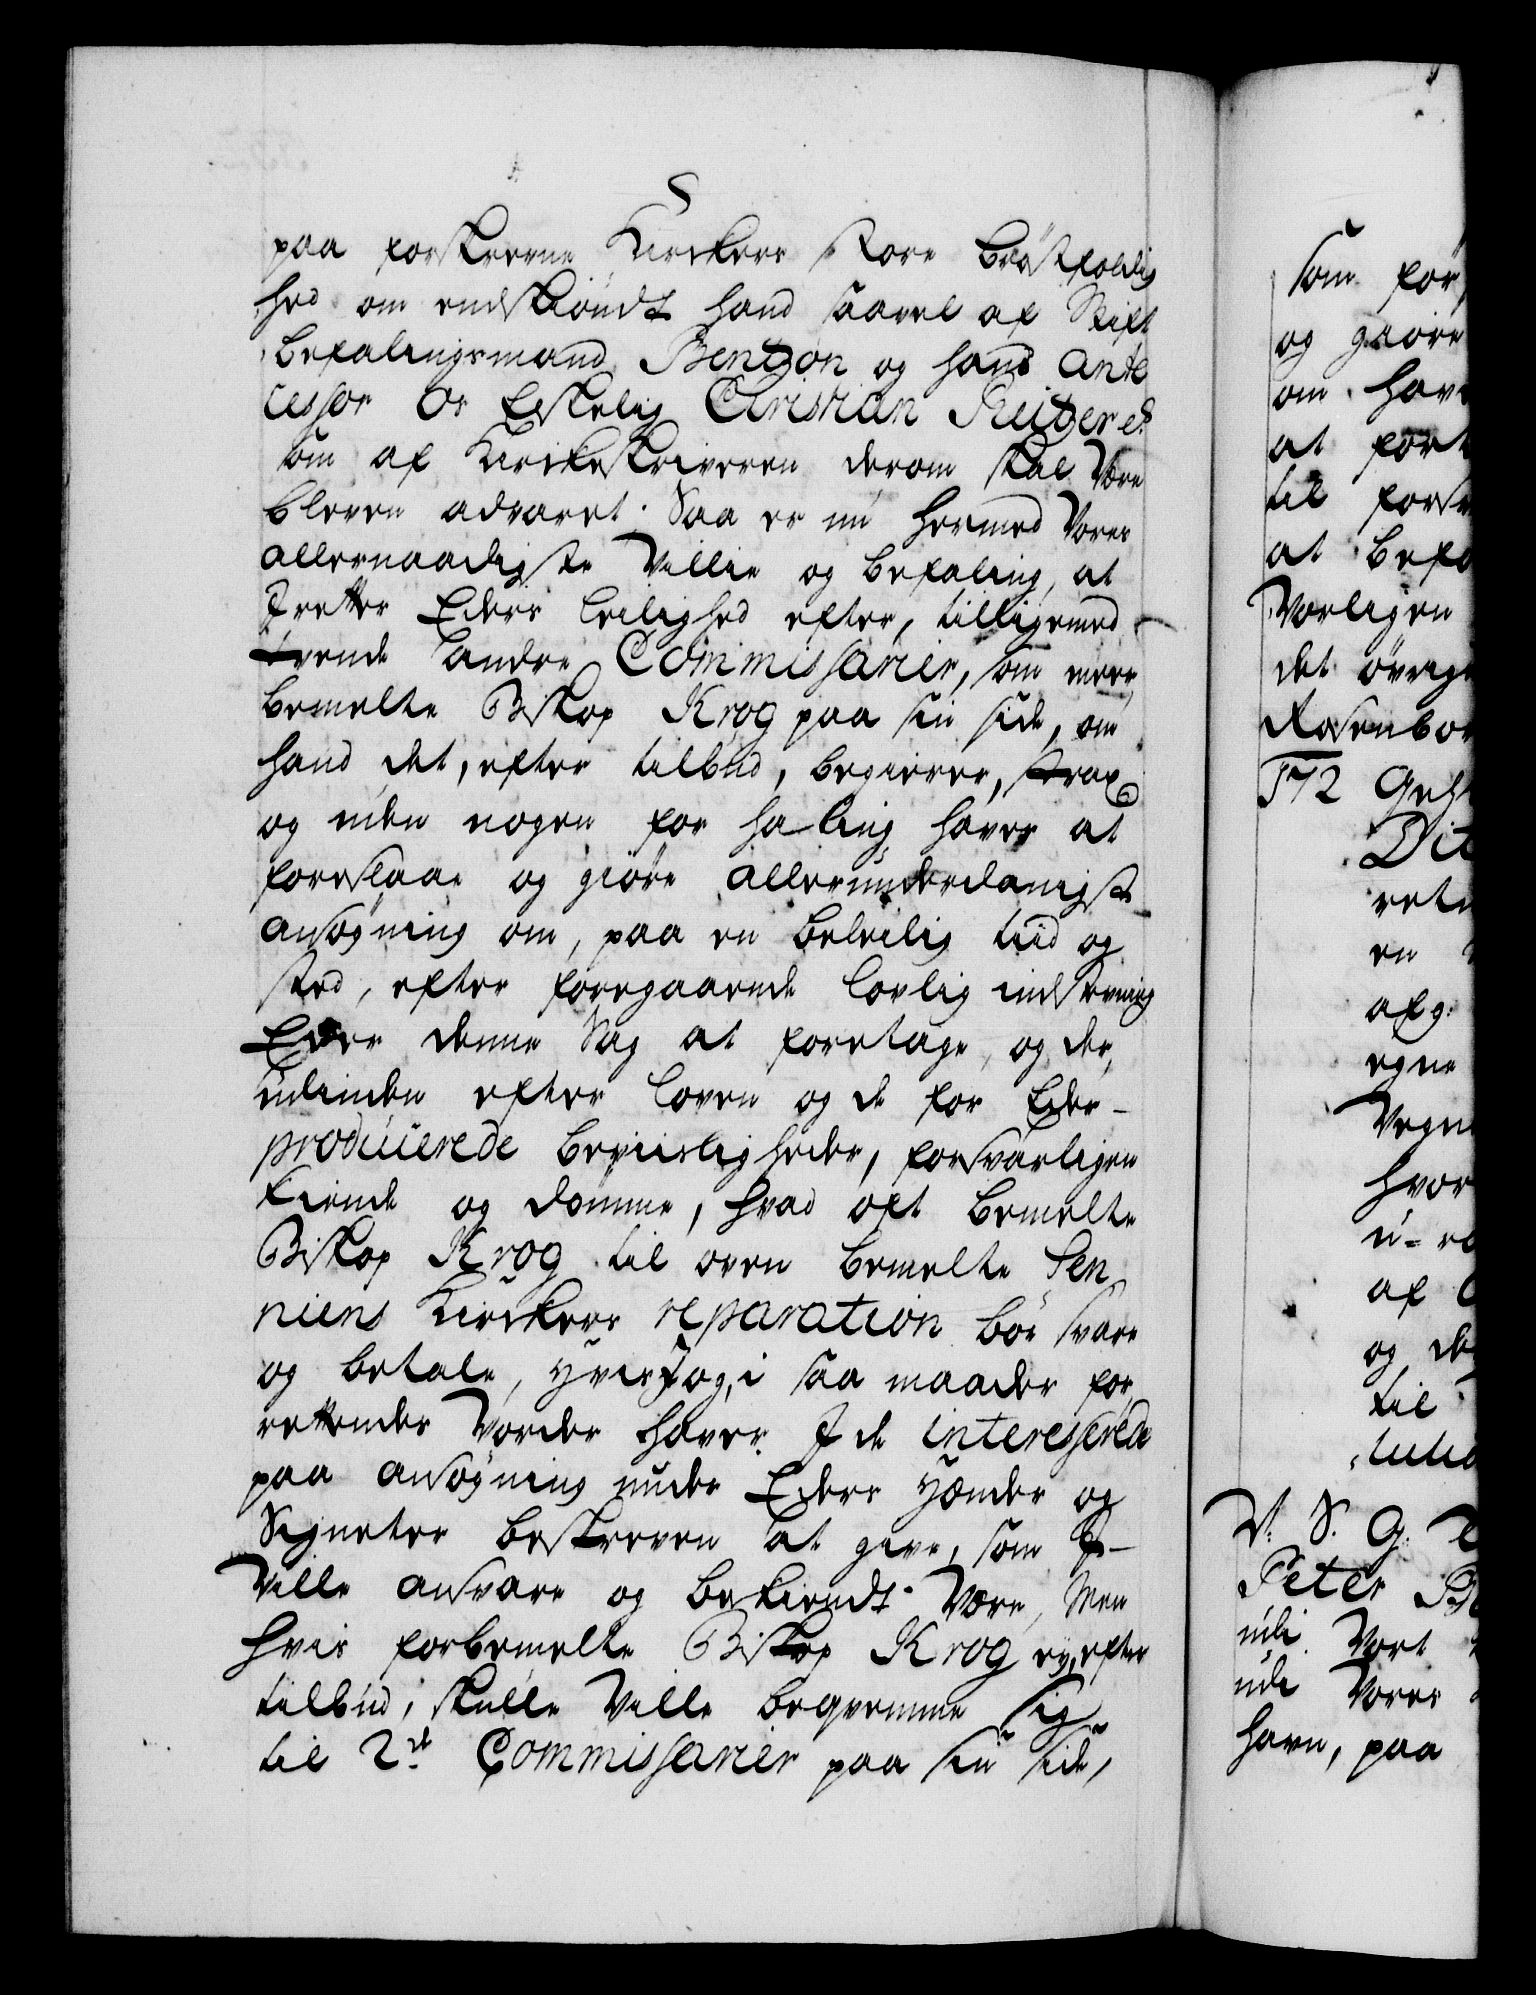 paa forskrevne Kirckers store Bröstfeldig
hed om endskiöndt hand saavel af Stift
befalingsmand Bentzon og hans Ante
cessor Os Elskelig Christian Reitzer
som af Kirckeskriveren derom skal Være
bleven advaret. Saa er nu hermed Vores
allernaadigste Villie og befaling, at
I retter Eders leilighed efter, tilligemed
tvende andre Commissarier, som meer
bemelte Biskop Krog paa sin side, om
hand det, efter tilbud, begierer, strax
og uden nogen forhaling haver at
foreslaae og giöre allerunderdanigst
ansögning om, paa en beleilig tiid og
sted, efter foregaaende lovlig indstevning
Eder denne Sag at foretage, og der,
udinden efter loven og de for Eder
producerede beviisligheder, forsvarligen
kiende og dömme, hvad oft bemelte
Biskop Krog til oven bemelte Sen
niens Kirckers reparation bör svare
og betale, Hvis I og, i saa maader for
rettendes Vorder haver I de interesserede
paa ansögning under Eders Hænder og
Signeter beskreven at give, som I
Ville ansvare og bekiendt Være, Men
hvis forbemelte Biskop Krog ey, efter
tilbud, skulle Ville beqvemme sig
til 2de Commissarier paa sin side,
som for
og giöre
om hav
at fort
til forsv
at befa
Vorligen
det övrige
Rosenbor
172
Dit
retn
en
afg:
egne
Vegne
hvor
u-re
af
og de
til
V. S. G.
Peter
udi Vort
udi Vores
havn, paa